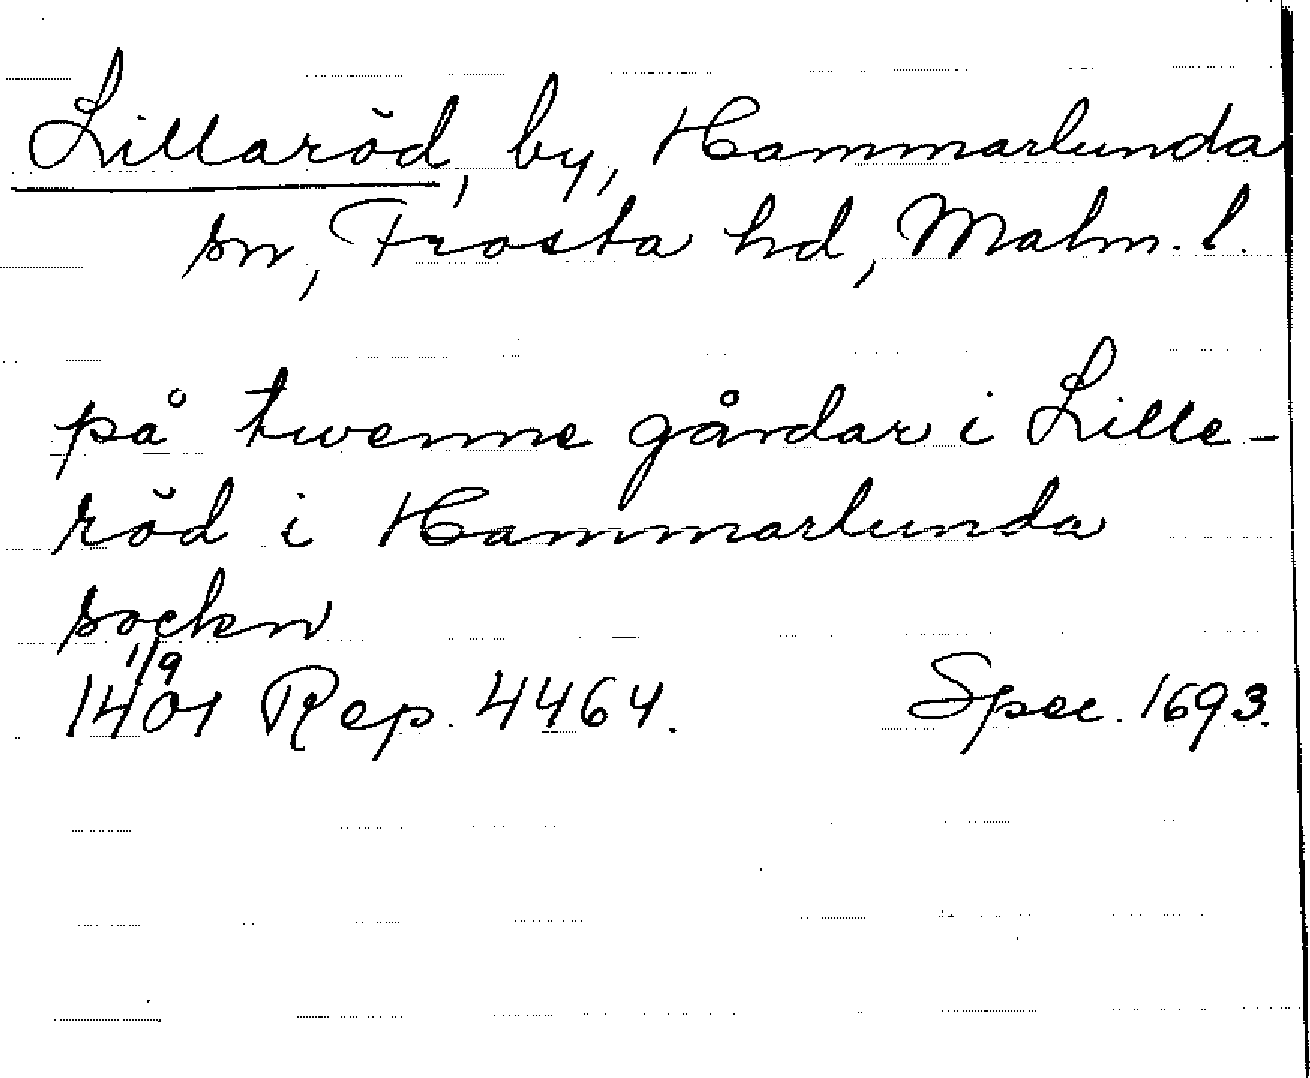 Lillaröd, by, Hammarlunda
sn, Frosta hd, Malm. l.
på twenne gårdar i Lille-
röd i Hammarlunda
sockn
1/9
1401 Rep. 4464. Spec. 1693.